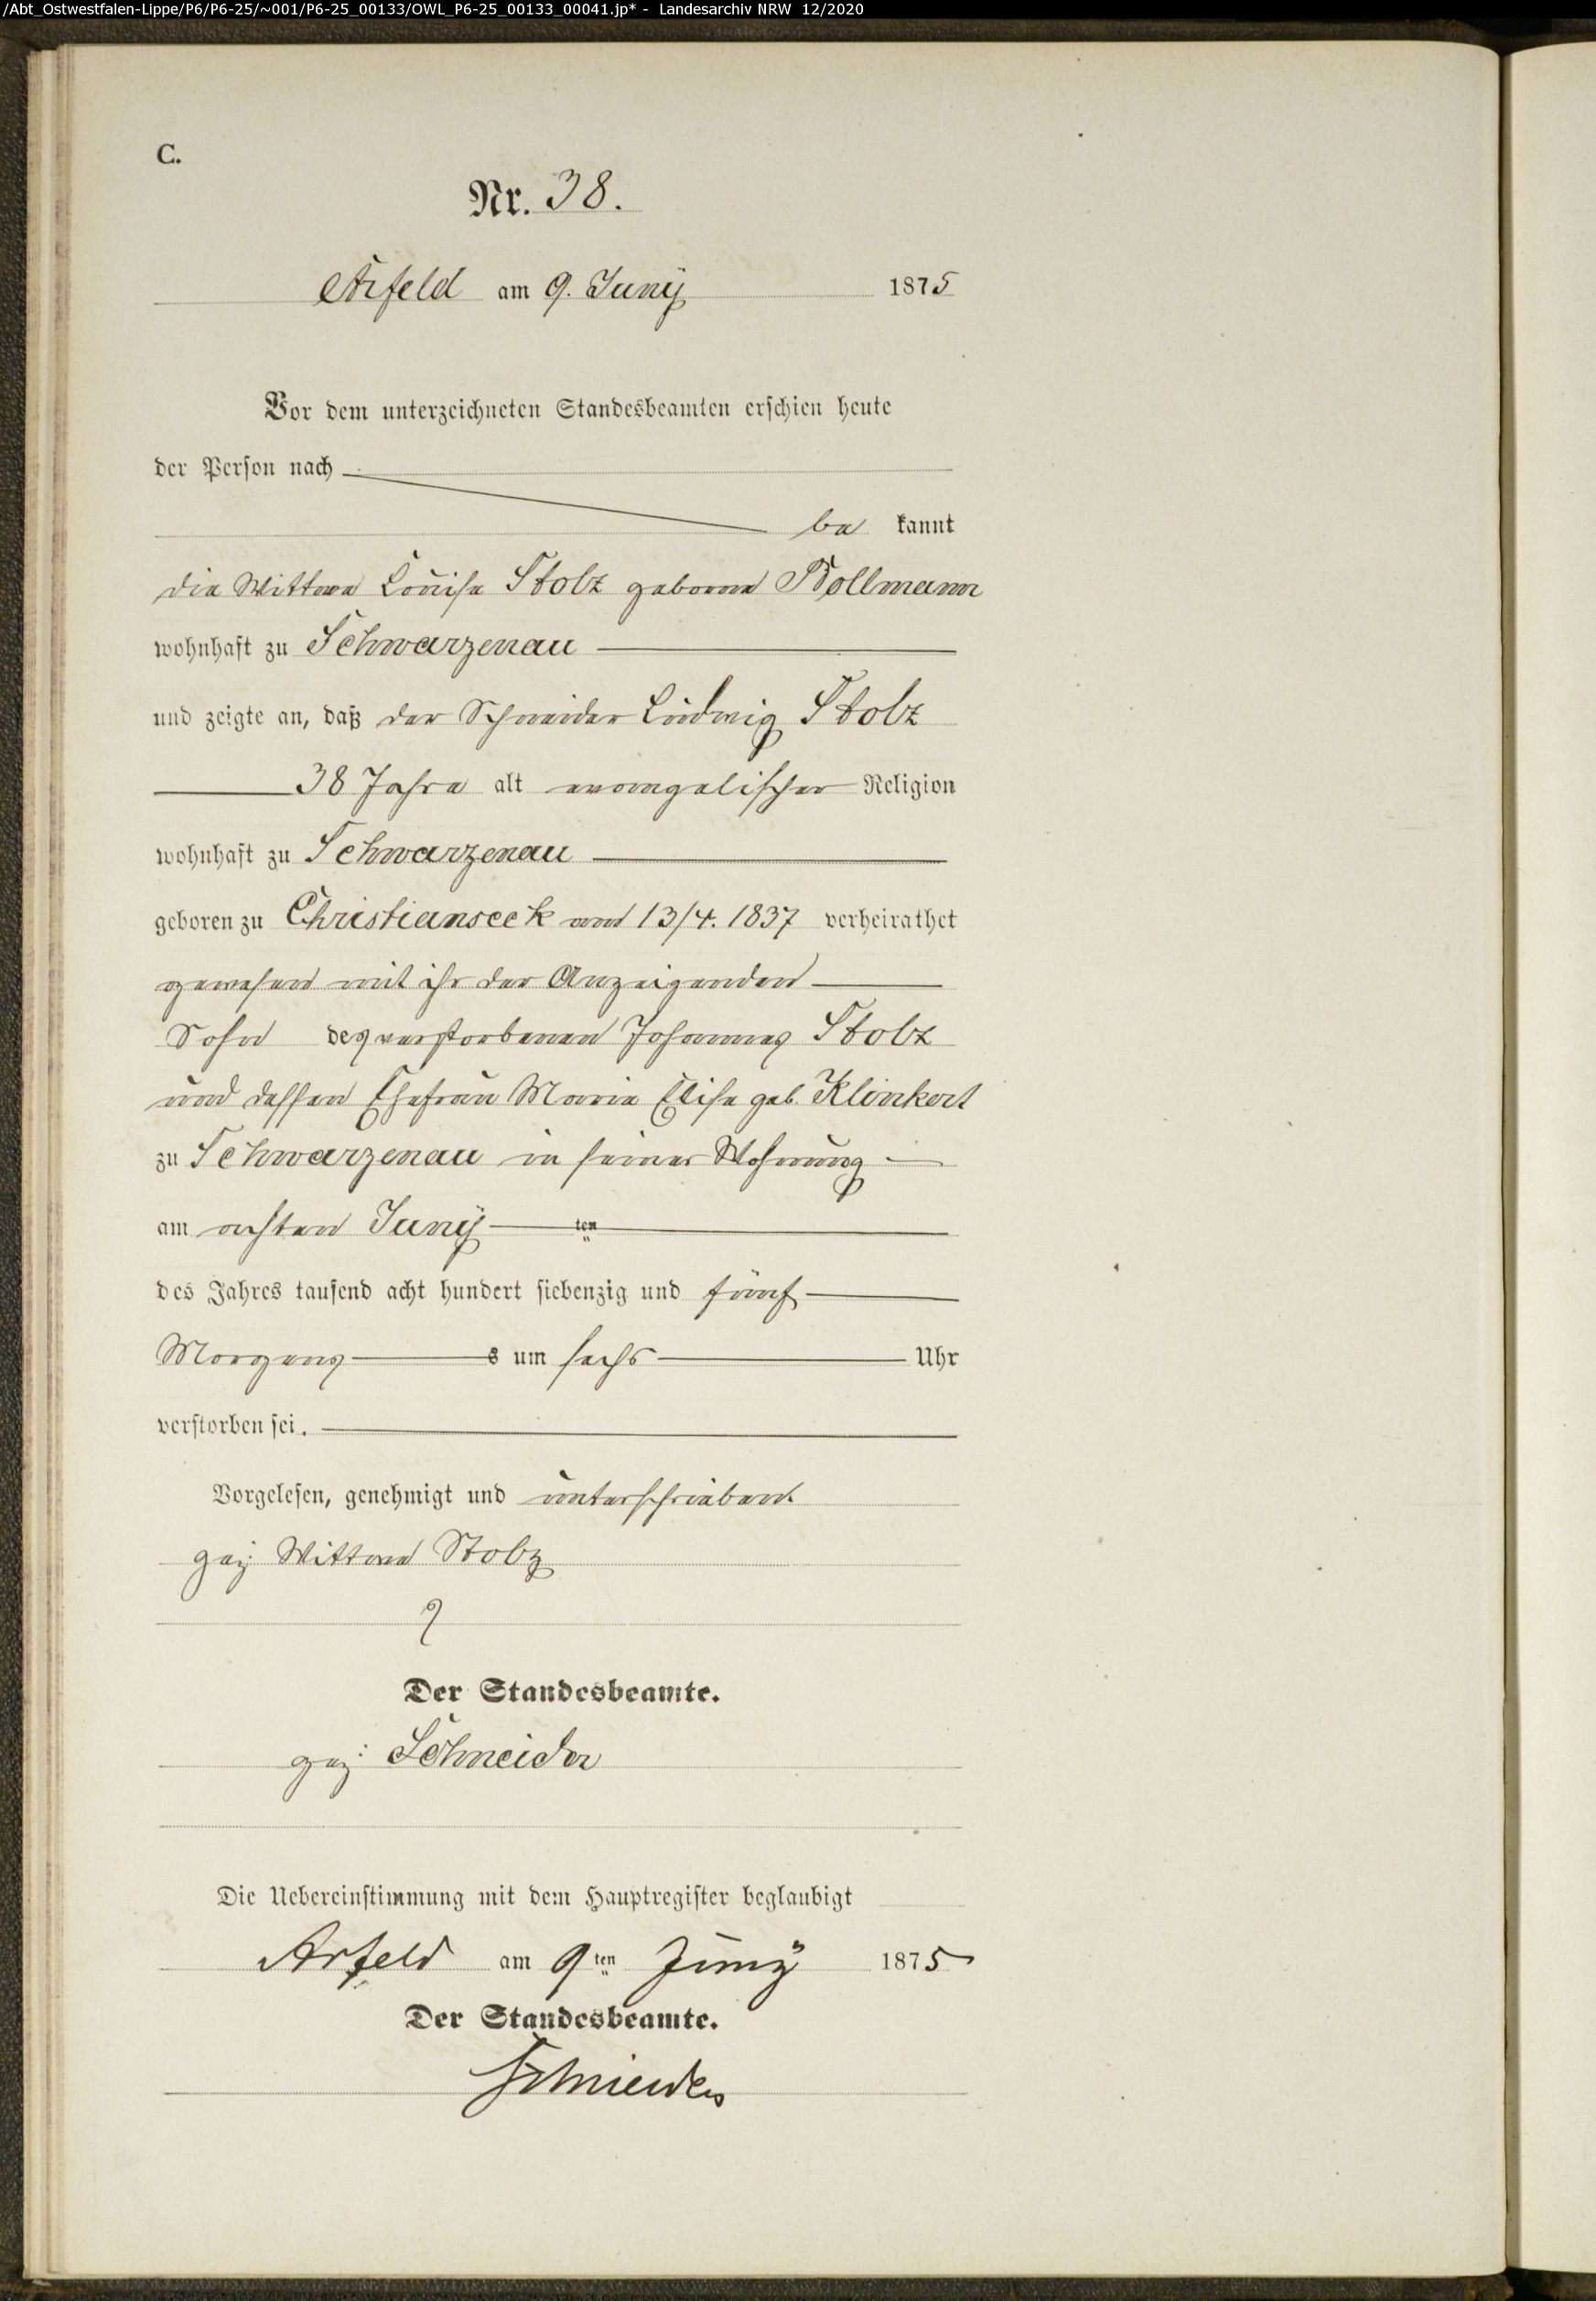 /Abt_Ostwestfalen-Lippe/P6/P6-25/~001/P6-25_00133/OWL_P6-25_00133_00041.jp* - Landesarchiv NRW 12/2020
C.
Nr. 38.
Arfeld am 9. Juny 1875
Vor dem unterzeichneten Standesbeamten erschien heute
der Person nach
be kannt
die Wittwe Louise Stolz geborne Bollmann
wohnhaft zu Schwarzenau
und zeigte an, daß der Schneider Ludwig Stolz
38 Jahre alt evangelischer Religion
wohnhaft zu Schwarzenau
geboren zu Christianseck am 13/4. 1837 verheirathet
gewesen mit ihr der Anzeigenden
Sohn des verstorbenen Johannes Stolz
und dessen Ehefrau Maria Elise geb. Klinkert
zu Schwarzenau in seiner Wohnung
am achten Juny ten
des Jahres tausend acht hundert siebenzig und fünf
Morgens s um sechs Uhr
verstorben sei.
Vorgelesen, genehmigt und unterschrieben.
gez: Wittwe Stolz
Der Standesbeamte.
gez: Schneider
Die Uebereinstimmung mit dem Hauptregister beglaubigt
Arfeld am 9ten Juny 1875
Der Standesbeamte.
Schneider